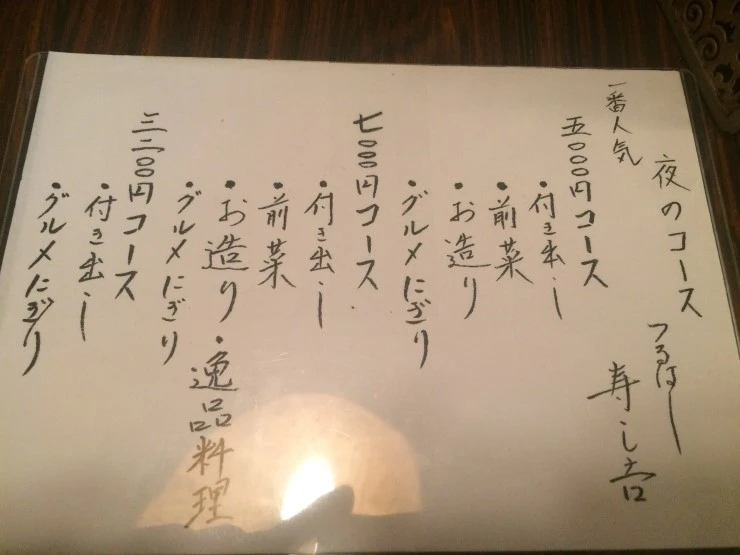 夜のコース
つるはし
寿し吉
一番人気
五〇〇〇円コース
・付き出し
・前菜
・お造り
・グルメにぎり
七〇〇〇円コース
・付き出し
・前菜
・お造り
・逸品料理
・グルメにぎり
三二〇〇円コース
・付き出し
・グルメにぎり